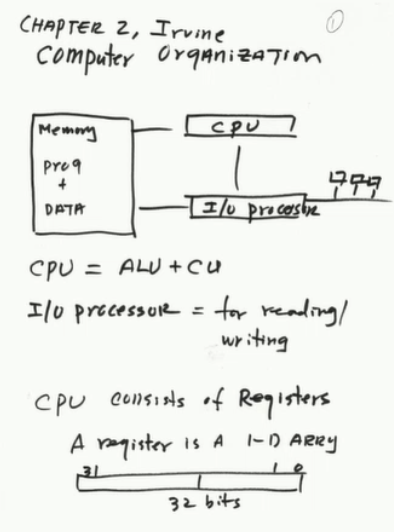 CHAPTER 2, Irvine
①
Computer Organization
Memory
prog
+
DATA
CPU
I/O procosor
CPU = ALU + CU
I/O processor = for reading/
writing
CPU consists of Registers
A register is A 1-D ARRY
31 1 0
32 bits